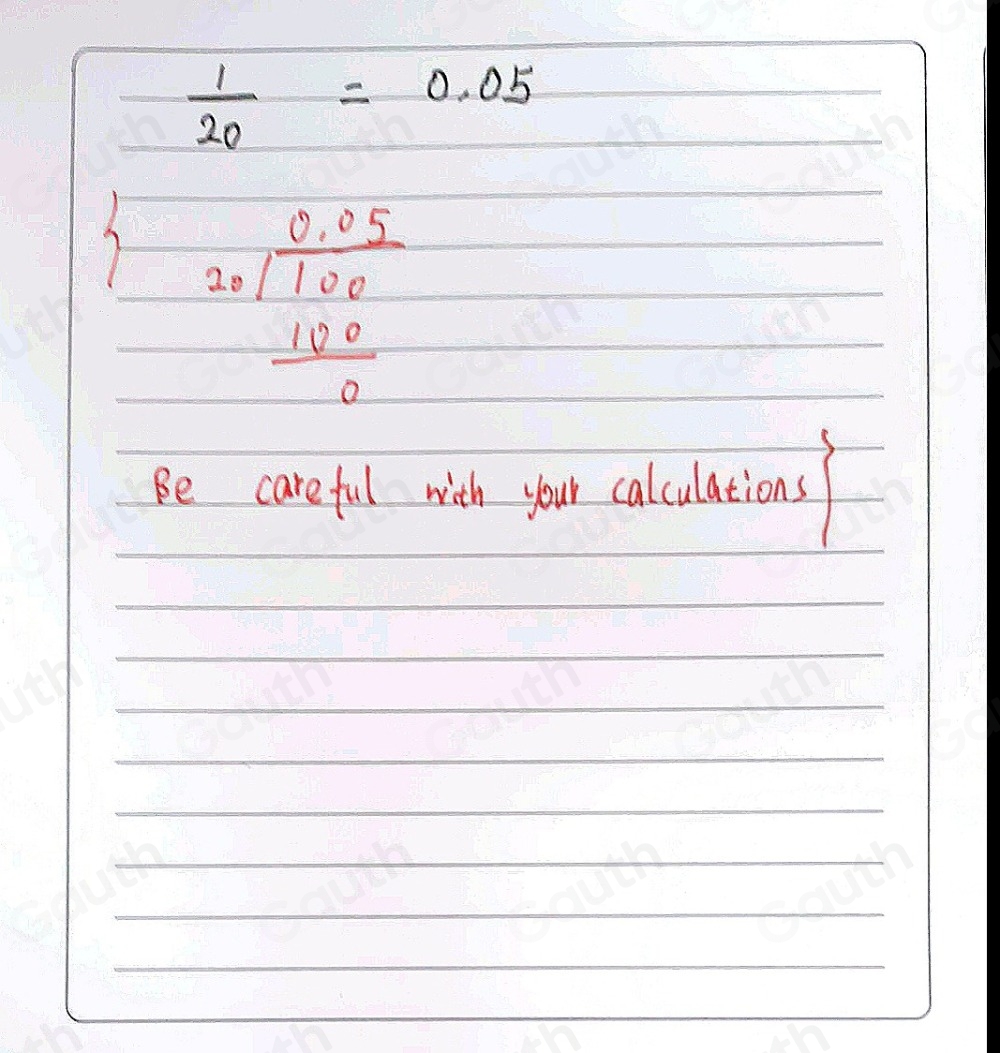 1/20 = 0.05
0.05
20/100
100
0
Be careful with your calculations
Gauth